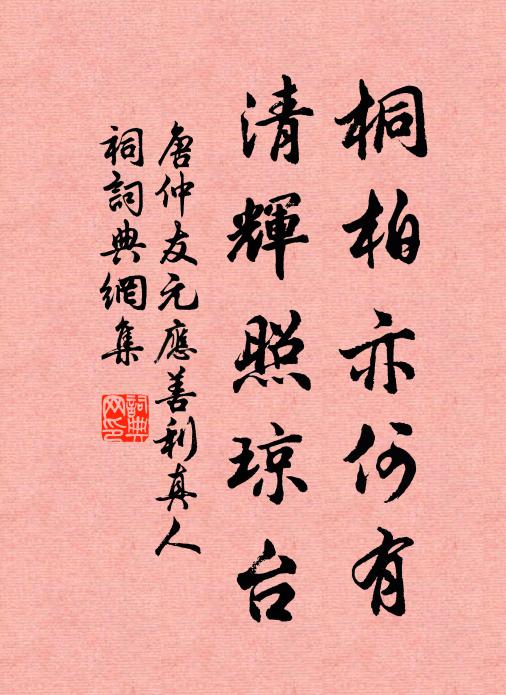 桐柏亦何有
清輝照琼台
唐仲友元應善利真人
祠詞典網集
詞典网印